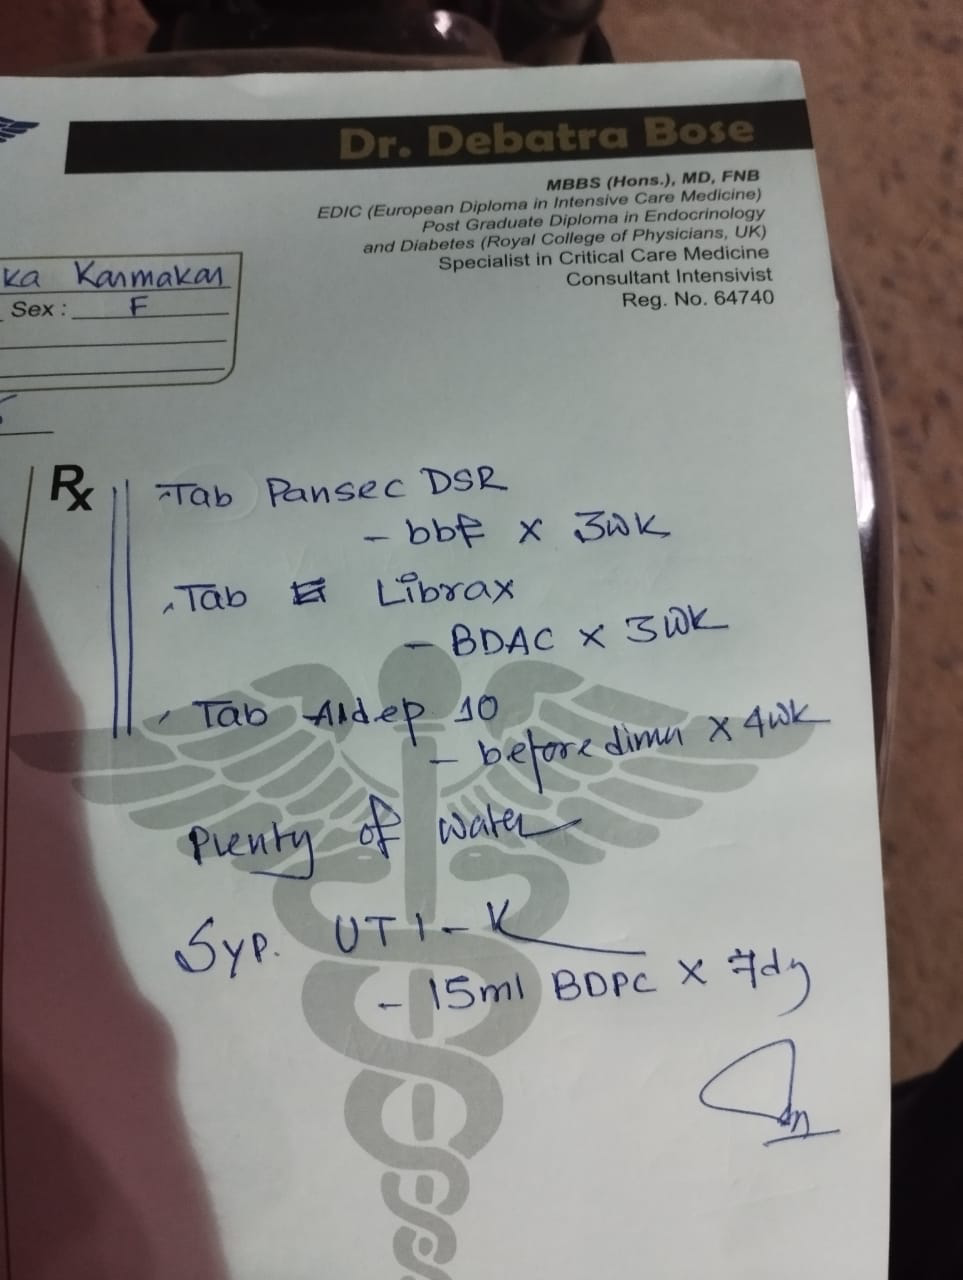 Dr. Debatra Bose
MBBS (Hons.), MD, FNB
EDIC (European Diploma in Intensive Care Medicine)
Post Graduate Diploma in Endocrinology
and Diabetes (Royal College of Physicians, UK)
Specialist in Critical Care Medicine
Consultant Intensivist
Reg. No. 64740
ka Karmakar
Sex : F
Rx
Tab Pansec DSR
- bbf x 3wk
Tab Librax
- BDAC x 3wk
Tab Aldep 10
- before dinner x 4wk
Plenty of water
Syp. UTI-K
- 15ml BDPC x 7dy